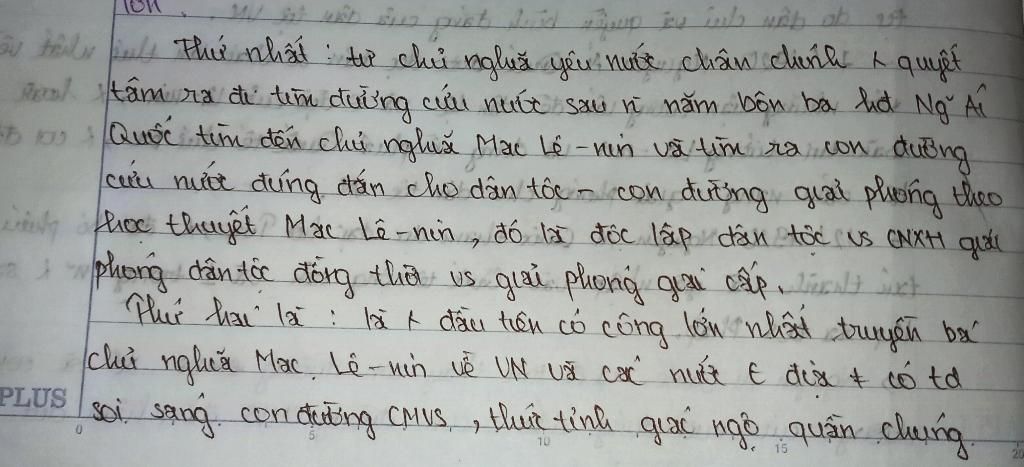 Thứ nhất : từ chủ nghĩa yêu nước chân chính & quyết
tâm ra đi tìm đường cứu nước sau n năm bôn ba hđ Ng~ Ái
Quốc tìm đến chủ nghĩa Mac Lê-nin và tìm ra con đường
cứu nước đúng đắn cho dân tộc - con đường giải phóng theo
học thuyết Mac Lê-nin, đó là độc lập dân tộc vs CNXH giải
phóng dân tộc đồng thời vs giải phóng giai cấp.
Thứ hai là : là ng đầu tiên có công lớn nhất truyền bá
chủ nghĩa Mac. Lê-nin về VN và các nước thuộc địa có td
soi sáng con đường CMVS, thức tỉnh giác ngộ quần chúng
PLUS
0 5 10 15 20